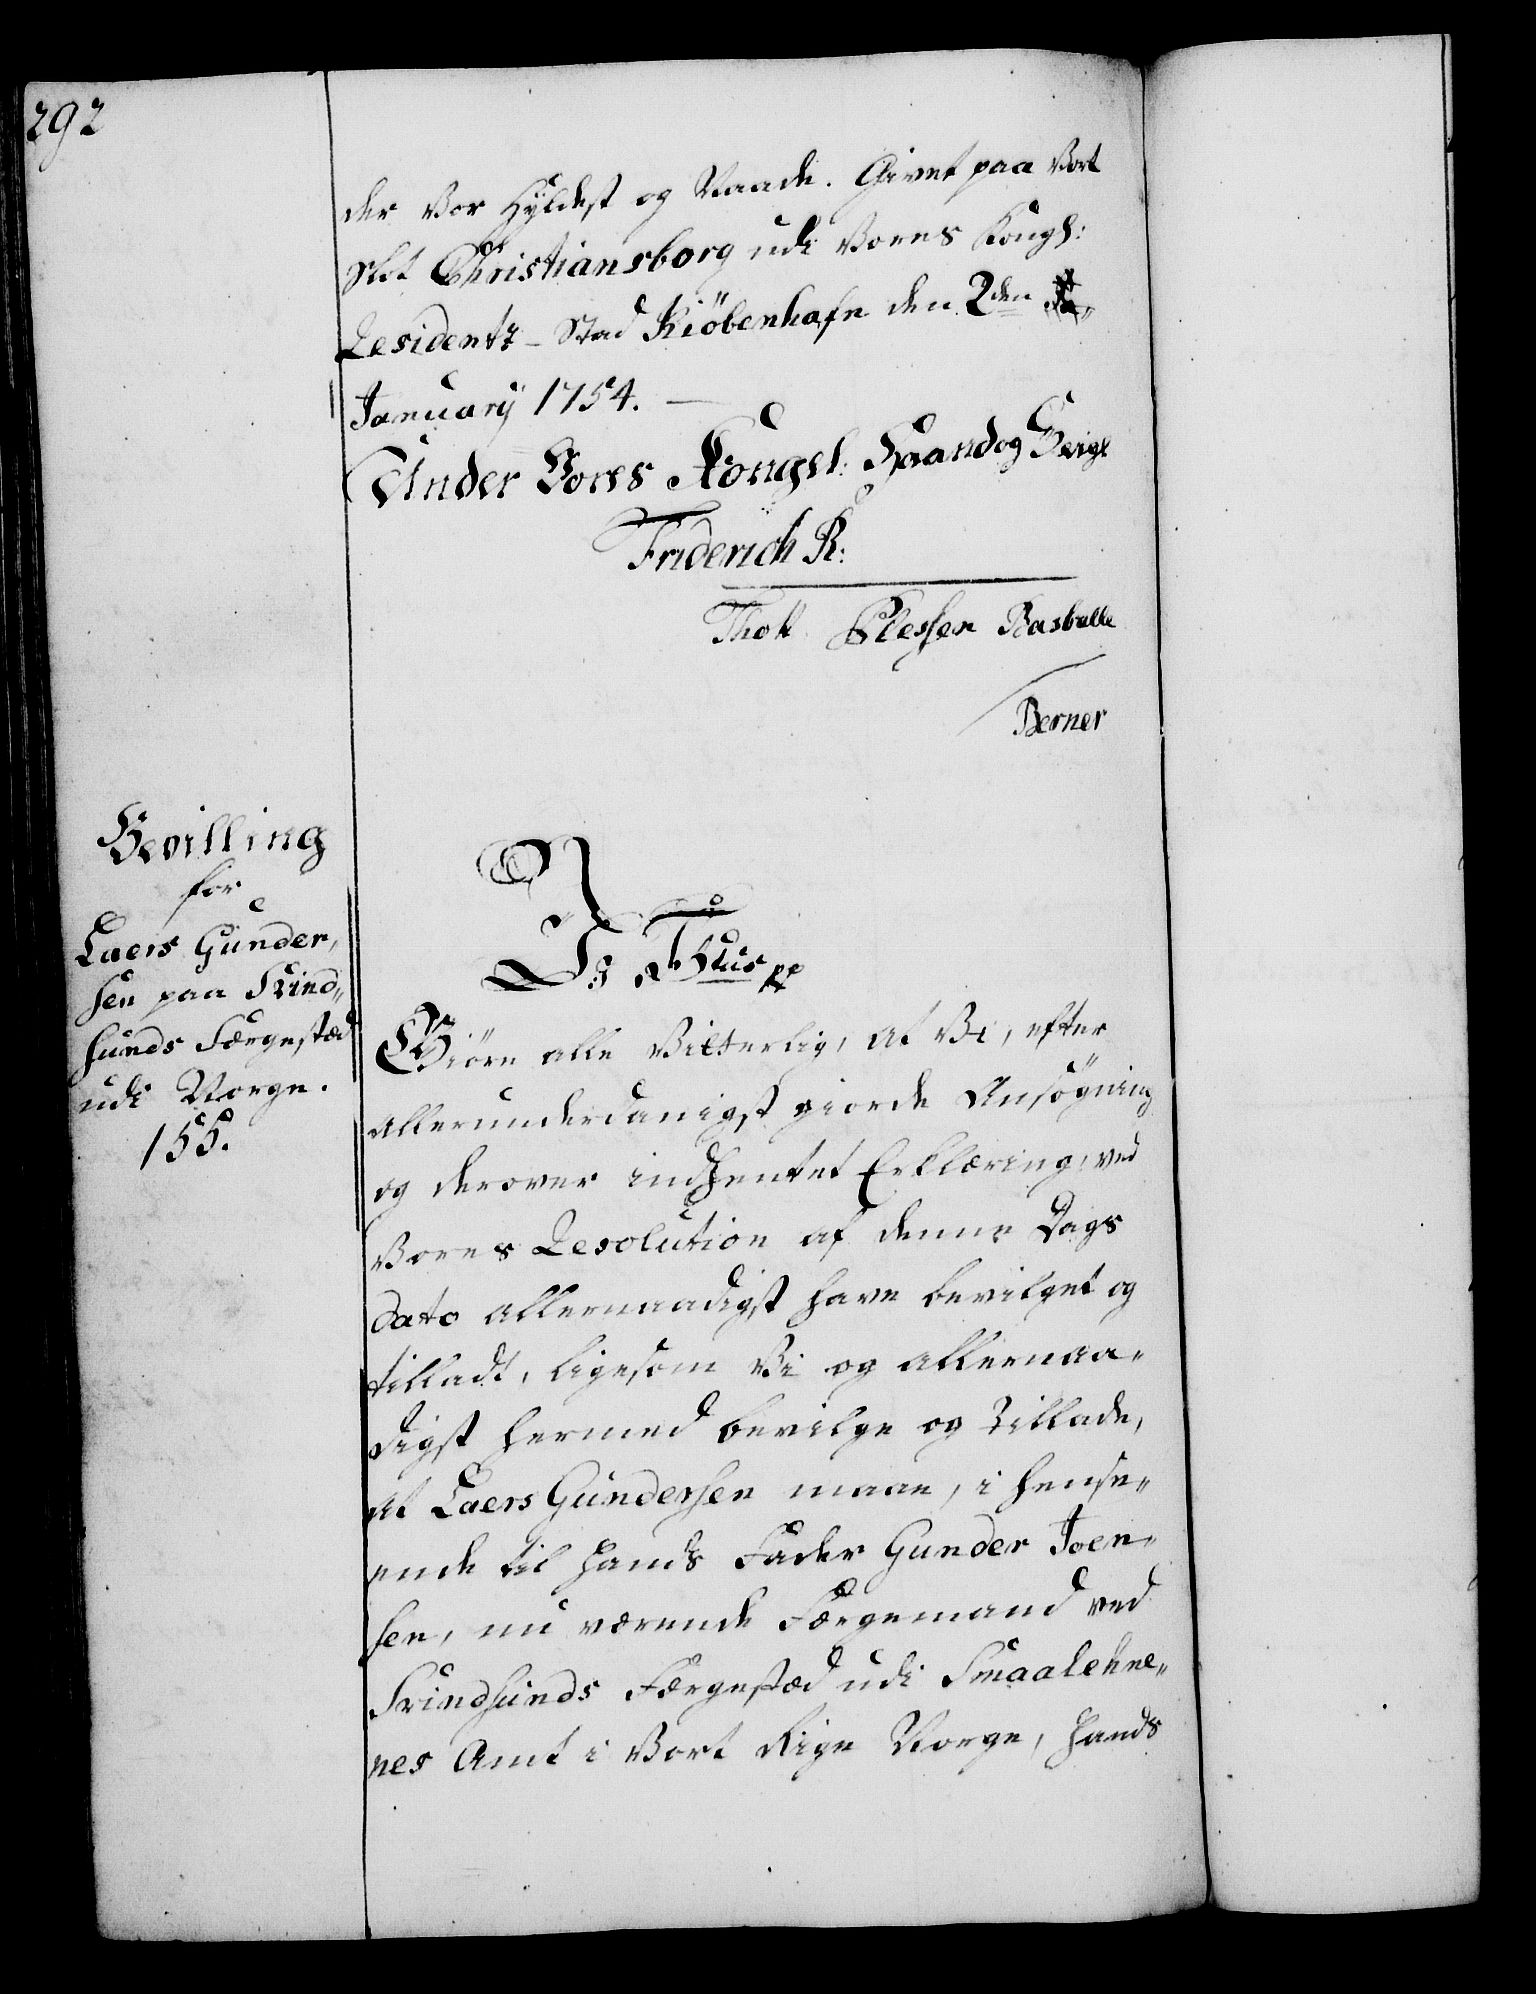 292
der Vor Hyldest og Naade. Givet paa Vort
Slot Christiansborg udi Vores Kongl:
Residentz-Stad Kiöbenhafn den 2den
Januarij 1754.
Under Vores Kongel: Haand og Seigl
Friderich R:
Thott Plessen Basballe
Berner
Bevilling
for
Laers Gunder,
sen paa Svind„
sunds Færgestæd
udi Norge.
155.
Giöre alle Vitterlig, at Vi, efter
allerunderdanigst giorde Ansögning
og derover indhentet Erklæring, ved
Vores Resolution af denne Dags
Dato allernaadigst have bevilget og
tilladt, ligesom Vi og allernaa„
digst hermed bevilge og Tillade,
at Laers Gundersen maae, i Hense„
ende til hands Fader Gunder Joen„
sen, nu værende Færgemand ved
Svindsunds Færgestæd udi Smaalehne„
nes Amt i Vort Rige Norge, hands